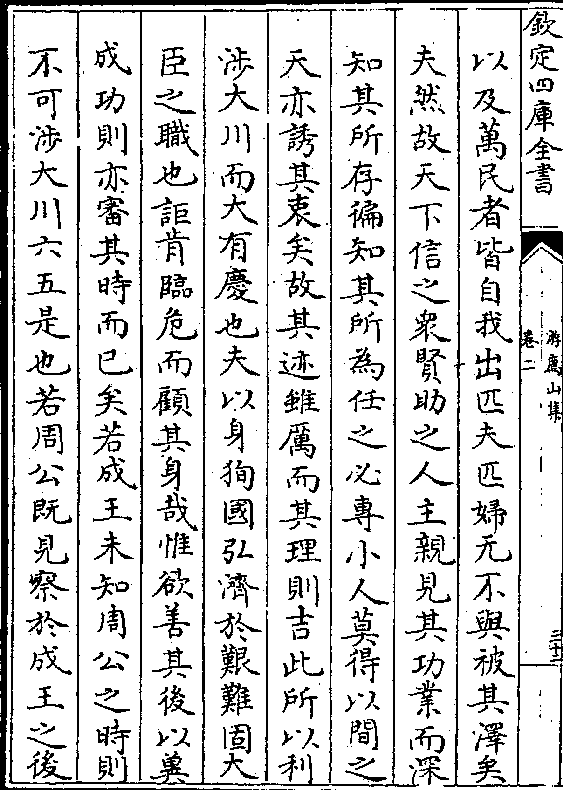 欽定四庫全書
游廌山集
卷二
三十二
以及萬民者皆自我出匹夫匹婦无不與被其澤矣
夫然故天下信之衆賢助之人主親見其功業而深
知其所存徧知其所為任之必專小人莫得以間之
天亦誘其衷矣故其迹雖厲而其理則吉此所以利
涉大川而大有慶也夫以身狥國弘濟於艱難固大
臣之職也詎肯臨危而顧其身哉惟欲善其後以冀
成功則亦審其時而已矣若成王未知周公之時則
不可涉大川六五是也若周公既見察於成王之後